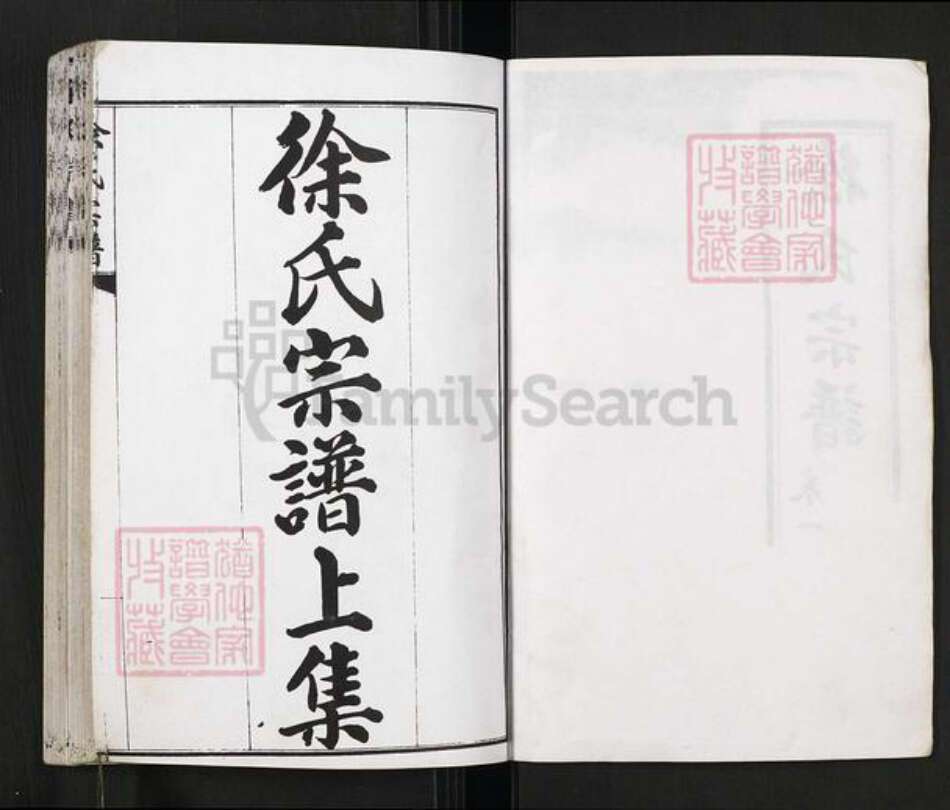 徐氏宗譜上集
徐氏宗譜
猶他家
譜學會
收藏
猶他家
譜學會
收藏
宗譜
FamilySearch